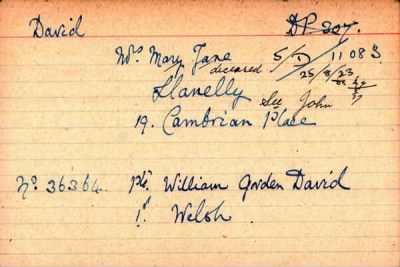 David D.P. 207.
Mrs Mary Jane 5/D/11083
deceased 25/8/23
Llanelly See John
19. Cambrian Place
No. 36364. Pte. William Gorden David
1st Welsh.